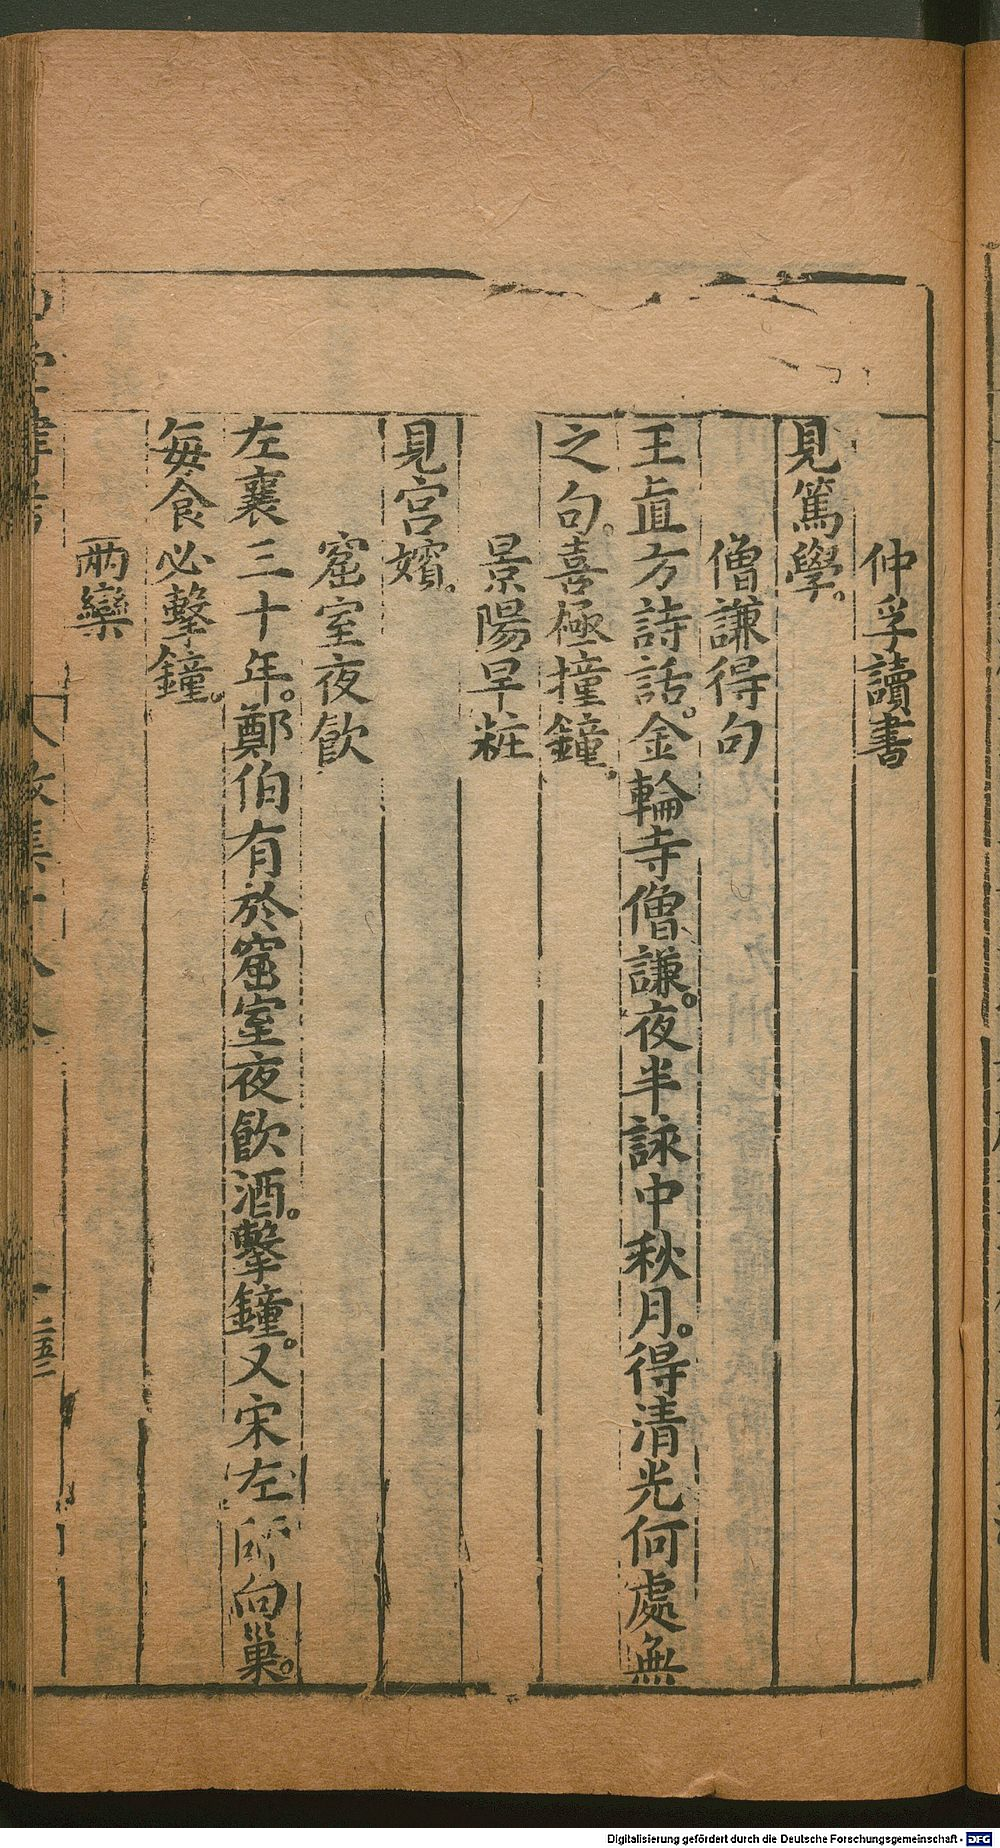 仲孚讀書
見篤學。
僧謙得句
王直方詩話。金輪寺僧謙。夜半詠中秋月。得清光何處無
之句。喜極撞鐘。
景陽早粧
見宮嬪。
窟室夜飲
左襄三十年。鄭伯有於窟室夜飲酒。擊鐘。又宋左師向巢。
每食必擊鐘。
兩欒
Digitalisierung gefördert durch die Deutsche Forschungsgemeinschaft - DFG